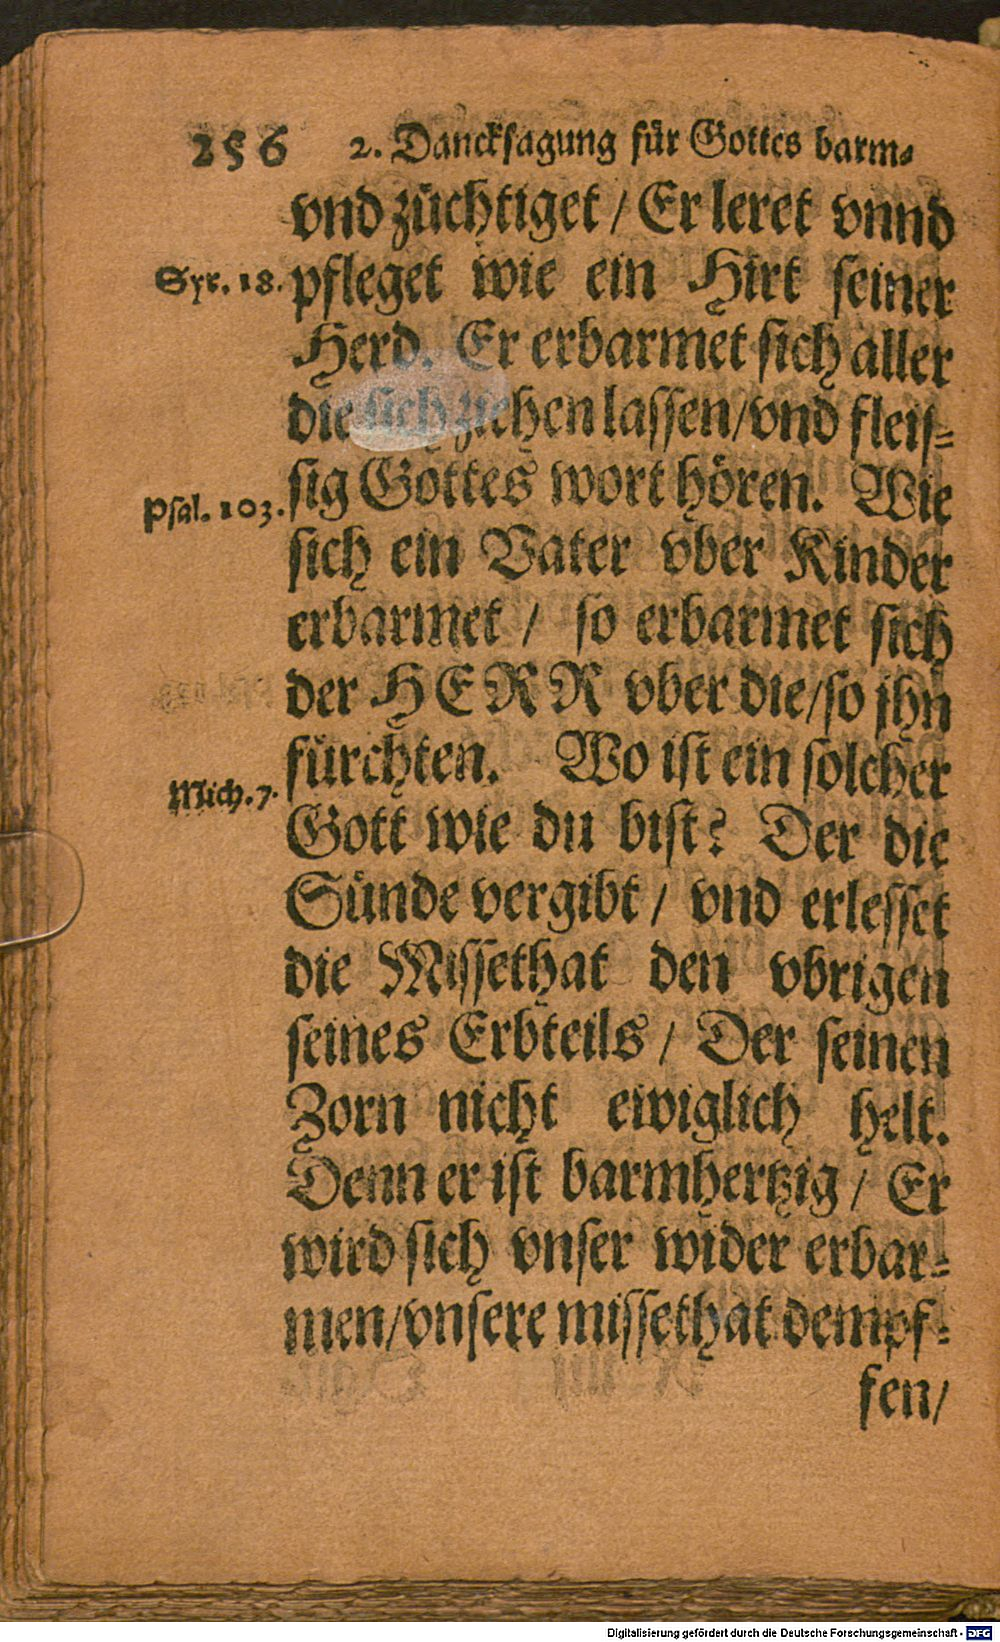 256 2. Danckſagung für Gottes barm⸗
vnd züchtiget / Er leret vnnd
Syr. 18. pfleget wie ein Hirt ſeiner
Herd. Er erbarmet ſich aller
die ſich ziehen laſſen/vnd fleiſ⸗
ſig Gottes wort hören. Wie
Pſal. 103. ſich ein Vater vber Kinder
erbarmet / ſo erbarmet ſich
der HERR vber die/ſo jhn
fürchten. Wo iſt ein ſolcher
Mich. 7. Gott wie du biſt? Der die
Sünde vergibt / vnd erleſſet
die Miſſethat den vbrigen
ſeines Erbteils / Der ſeinen
Zorn nicht ewiglich helt.
Denn er iſt barmhertzig / Er
wird ſich vnſer wider erbar⸗
men/vnſere miſſethat dempf⸗
fen/
Digitalisierung gefördert durch die Deutsche Forschungsgemeinschaft - DFG